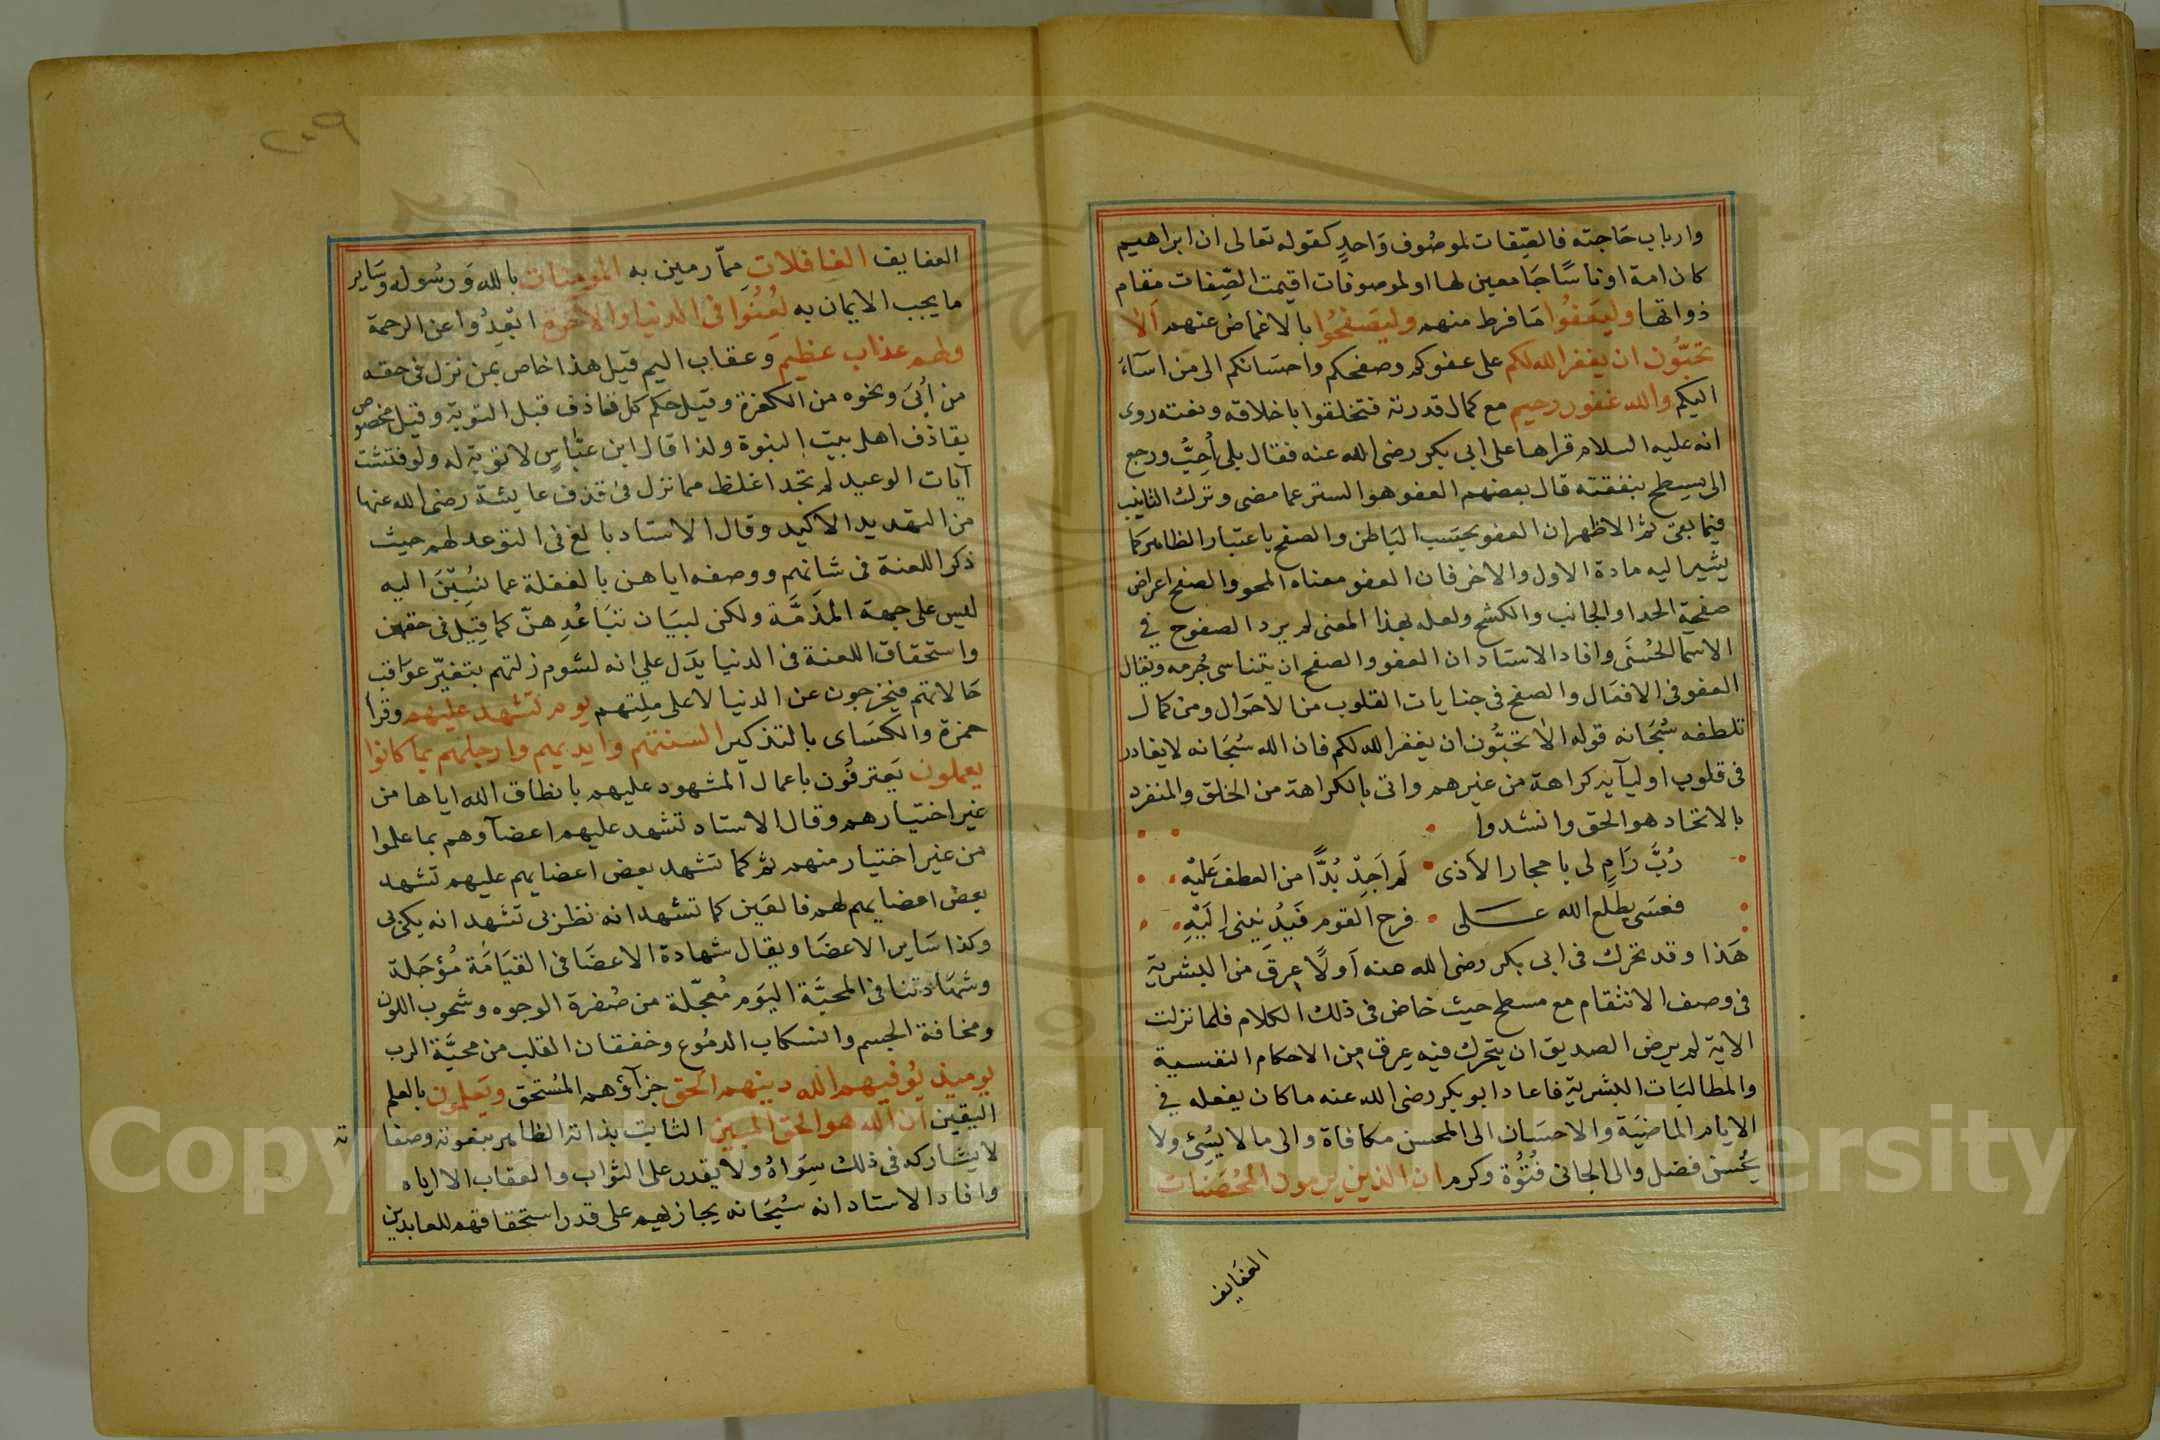 وارباب حاجته فالصِّفات لموصُوف وَاحدٍ كقوله تعالى ان ابراهيم
كان امة اوناسًا جَامعين لها اولموصوفات اقيمت الصِّفات مقام
ذواتها وليَعفُوا مَا فرط منهم وليَصفحُوا بالاغماض عنهم اَلا
تحبُّون ان يغفر الله لكم على عفوكم وصفحكم واحسَانكم الى من اسآءَ
اليكم والله غفور رحيم مع كمال قدرته فتخلقوا باخلاقه ونعته روى
انه عليه السلام قراها على ابى بكر رضى الله عنه فقال بلى اُحِبُّ ورجع
الى مسطح بنفقته قال بعضهم العفو هو الستر عما مضى وترك التانيب
فيما بقى ثم الاظهر ان العفو بحسَب البَاطن والصفح باعتبار الظاهر كما
يشير اليه مادة الاول والاخر فان العفو معناه المحو والصفح اعراض
صفحة الخد او الجانب والكشح ولعله بهذا المعنى لم يرد الصفوح في
الاسمآ الحُسنَى وافاد الاستاد ان العفو والصفح ان يتناسى جُرمه ويقال
العفو فى الافعَال والصفح فى جنايات القلوب من الاحوَال ومن كمال
تلطفه سُبحَانه قوله اَلا تحبُّون ان يغفر الله لكم فان الله سُبحَانه لا يغادر
فى قلوب اوليآيه كراهة من غيرهم واتى بالكراهة من الخلق والمنفرد
بالاتخاد هو الحق وانشدوا
رُبَّ رَامٍ لى باحجار الاَذى لَم اَجِدْ بُدًّا من العطف عَليْهِ
فعسَى يطلع الله عـــلى فرح القوم فَيُدنِينى اِلَيْهِ
هَذا وقد تحرك فى ابى بكر رضى الله عنه اَولًا عِرقٌ من البشرية
فى وصف الانتقام مع مسطح حيث خاض فى ذلك الكلام فلما نزلت
الاية لم يرض الصديق ان يتحرك فيه عِرق من الاحكام النفسية
والمطالبَات البشرية فاعاد ابو بكر رضى الله عنه ما كان يفعله في
الايام الماضيَة والاحسَان الى المحسن مكافاة والى ما لا يُسِئ ولا
يُحسن فضل والى الجانى فُتوُّة وكرم ان الذين يرمون المحُصَنات
العفايف
٢٠٩
العفايف الغافلات مِمّا رمين به المومنات بالله وَرسُوله وسَاير
ما يجب الايمان به لُعِنُوا فى الدنيا والاخرة ابعِدُوا عن الرحمة
ولهم عذاب عظيم وَعقاب اليم قيل هذا خاص بمن نزل فى حقه
من اُبَى ونحوه من الكفرة وقيل حكم كل قاذف قبل التوبة وقيل مخصوص
بقاذف اهل بيت النبوة ولذا قال ابن عبّاسٍ لا توبة له ولو فتشت
آيات الوعيد لم تجد اغلظ مما نزل فى قذف عايشة رضى الله عنها
من التهديد الاكيد وقال الاستاد بالغ فى التوعد لهم حيث
ذكر اللعنة فى شانهم ووصفه اياهن بالغفلة عما نُسِبْنَ اليه
ليس على جهة المذَمَّة ولكن لبيَان تبَاعُدِهنّ كما قِيل فى حقهن
واستحقاق اللعنة فى الدنيا يدَل على انه لشوم زلتهم بتغيّر عوَاقب
حَالاتهم فيخرجون عن الدنيا لا على مِلتهم يوم تشهد عليهم وقرأ
حمزة والكسَاى بالتذكير السنتهم وايديهم وارجلهم بما كانوا
يعملون يَعترفُون باعمال المشهود عليهم بانطاق الله اياها من
غير اختيارهم وقال الاستاد تشهد عليهم اعضآوهم بما عملوا
من غير اختيار منهم ثم كما تشهد بعض اعضايهم عليهم تشهد
بعض اعضايهم لهم فالعَين كما تشهد انه نظر بى تشهد انه بكى بى
وكذا سَاير الاعضَا ويقال شهادة الاعضَا فى القيَامَة مُؤجَلة
وشهَادتنا فى المحبَّة اليَوم مُعجّلة من صُفرة الوجوه وشحوب اللون
ومخافة الجسم وانسكاب الدمُوع وخفقان القلب من محبَّة الرب
يوميذ يُوفيهم الله دينهم الحَق جزآؤهم المُستحق ويَعلمون بالعلم
اليقين ان الله هو الحق المبين الثابت بذاته الظاهر بنعوته وصفاته
لا يشاركه فى ذلك سِوَاهُ ولا يقدر على الثواب والعقاب الا اياه
وافاد الاستاد انه سُبحَانه يجازيهم على قدر استحقاقهم للعابدين
Copyright © King Saud University